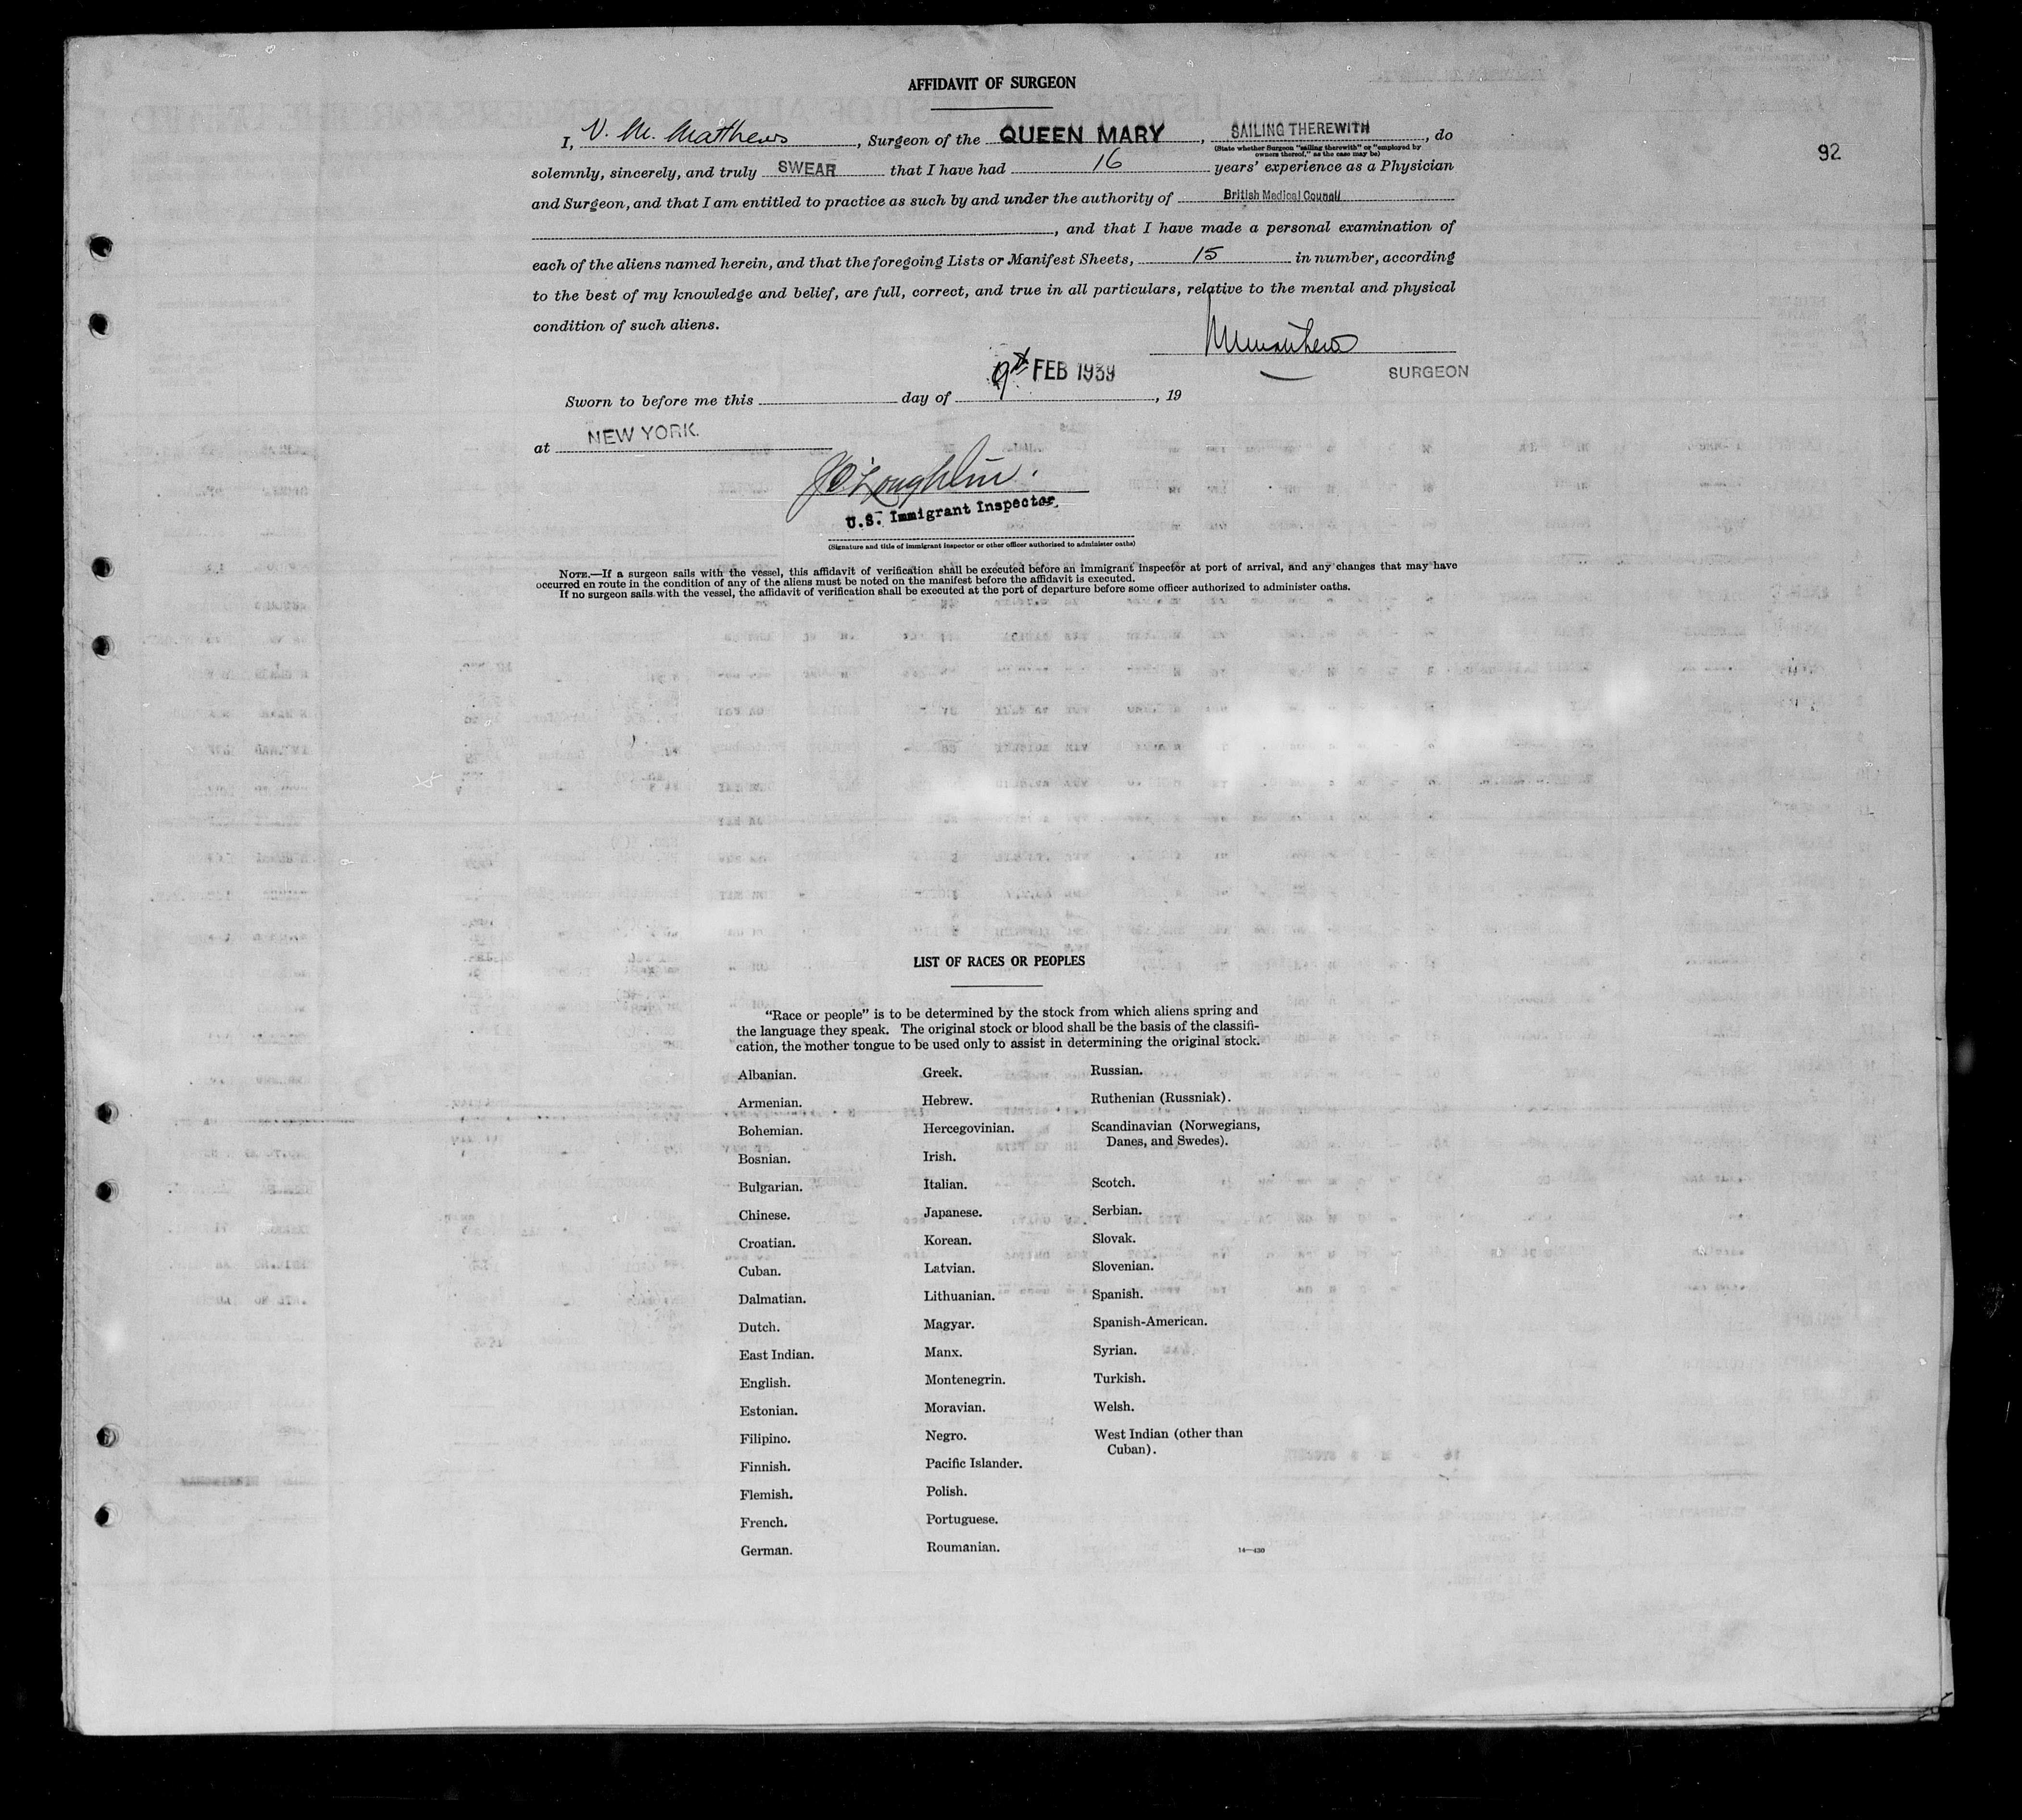 AFFIDAVIT OF SURGEON
92
I, V. M. Matthews, Surgeon of the QUEEN MARY, SAILING THEREWITH, do
(State whether Surgeon "sailing therewith" or "employed by
owners thereof," as the case may be)
solemnly, sincerely, and truly SWEAR that I have had 16 years' experience as a Physician
and Surgeon, and that I am entitled to practice as such by and under the authority of British Medical Council
, and that I have made a personal examination of
each of the aliens named herein, and that the foregoing Lists or Manifest Sheets, 15 in number, according
to the best of my knowledge and belief, are full, correct, and true in all particulars, relative to the mental and physical
condition of such aliens.
SURGEON
9th FEB 1939
Sworn to before me this day of , 19
at NEW YORK.
J O'Loughlin.
U.S. Immigrant Inspector.
(Signature and title of immigrant inspector or other officer authorized to administer oaths)
NOTE.—If a surgeon sails with the vessel, this affidavit of verification shall be executed before an immigrant inspector at port of arrival, and any changes that may have
occurred en route in the condition of any of the aliens must be noted on the manifest before the affidavit is executed.
If no surgeon sails with the vessel, the affidavit of verification shall be executed at the port of departure before some officer authorized to administer oaths.
LIST OF RACES OR PEOPLES
"Race or people" is to be determined by the stock from which aliens spring and
the language they speak. The original stock or blood shall be the basis of the classifi-
cation, the mother tongue to be used only to assist in determining the original stock.
Albanian.
Armenian.
Bohemian.
Bosnian.
Bulgarian.
Chinese.
Croatian.
Cuban.
Dalmatian.
Dutch.
East Indian.
English.
Estonian.
Filipino.
Finnish.
Flemish.
French.
German.
Greek.
Hebrew.
Hercegovinian.
Irish.
Italian.
Japanese.
Korean.
Latvian.
Lithuanian.
Magyar.
Manx.
Montenegrin.
Moravian.
Negro.
Pacific Islander.
Polish.
Portuguese.
Roumanian.
Russian.
Ruthenian (Russniak).
Scandinavian (Norwegians,
Danes, and Swedes).
Scotch.
Serbian.
Slovak.
Slovenian.
Spanish.
Spanish-American.
Syrian.
Turkish.
Welsh.
West Indian (other than
Cuban).
14—430